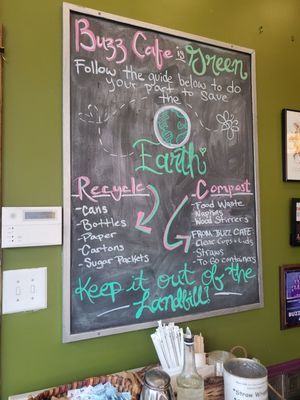 Buzz Cafe is Green
Follow the guide below to do
your part to save
the
Earth!
Recycle
-Cans
-Bottles
-Paper
-Cartons
-Sugar Packets
Compost
-Food Waste
Napkins
Wood Stirrers
FROM BUZZ CAFE
-Clear Cups & Lids
-Straws
-To Go Containers
Keep it out of the
Landfill!
BUZZ